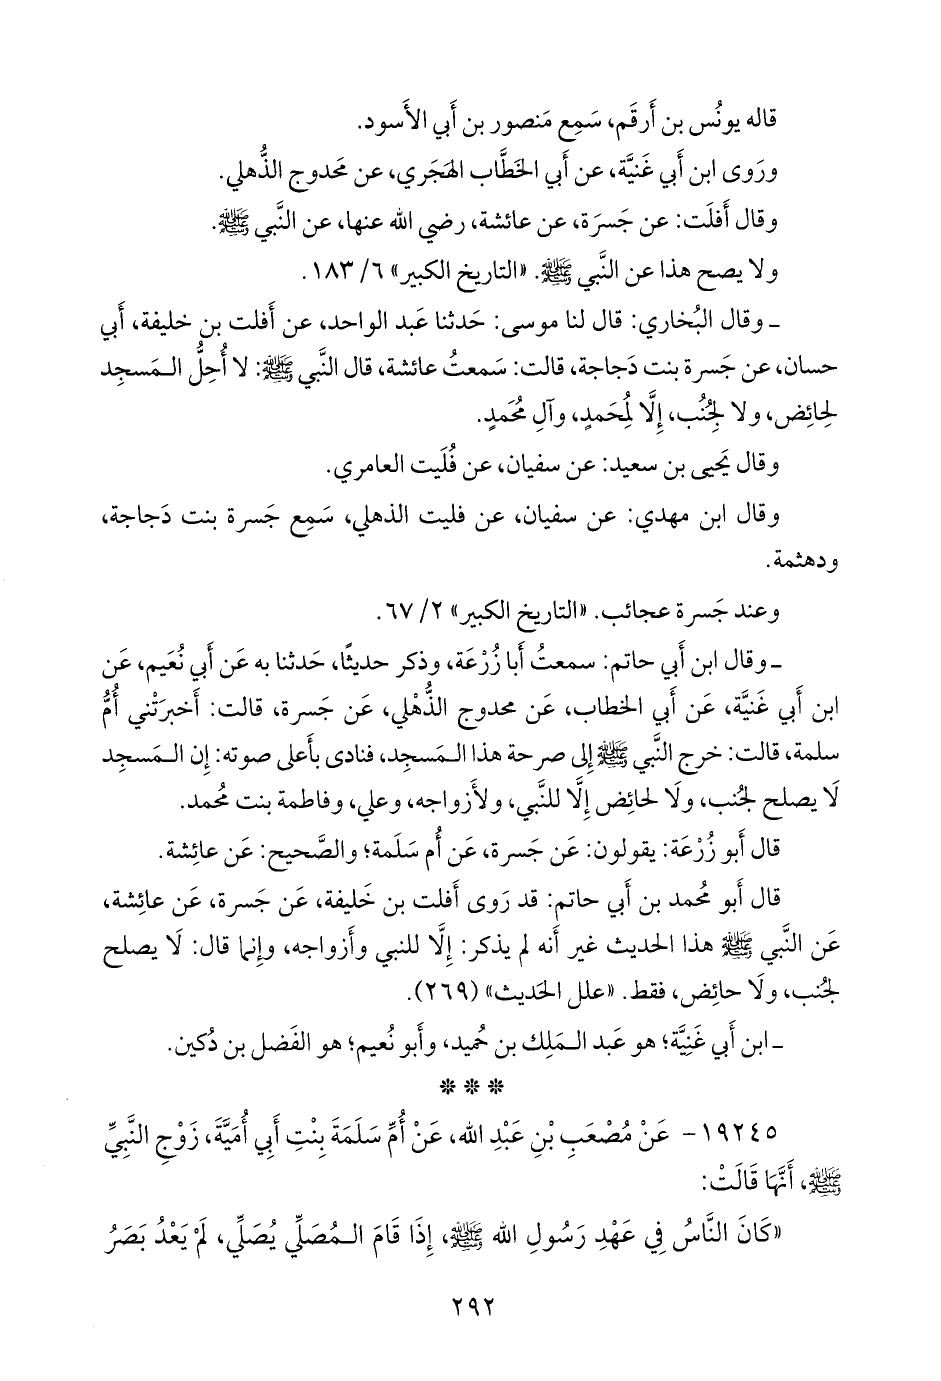 قاله يونُس بن أَرقَم، سَمِع مَنصور بن أَبي الأَسود.
ورَوى ابن أَبي غَنيَّة، عن أَبي الخَطَّاب الهَجَري، عن مَحدوج الذُّهلي.
وقال أَفلَت: عن جَسرَة، عن عائشة، رضي الله عنها، عن النَّبي ﷺ.
ولا يصح هذا عن النَّبي ﷺ. «التاريخ الكبير» ٦/ ١٨٣.
ـ وقال البُخاري: قال لنا موسى: حَدثنا عَبد الواحد، عن أَفلت بن خليفة، أَبي
حسان، عن جَسرة بنت دَجاجة، قالت: سَمعتُ عائشة، قال النَّبي ﷺ: لا أُحِلُّ الـمَسجِد
لِحائِض، ولا لِجُنُب، إِلَّا لمُحَمدٍ، وآلِ مُحَمدٍ.
وقال يَحيى بن سعيد: عن سفيان، عن فُلَيت العامري.
وقال ابن مهدي: عن سفيان، عن فليت الذهلي، سَمِع جَسرة بنت دَجاجة،
ودهثمة.
وعند جَسرة عجائب. «التاريخ الكبير» ٢/ ٦٧.
ـ وقال ابن أَبي حاتم: سمعتُ أَبا زُرْعَة، وذكر حديثًا، حَدثنا به عَن أَبي نُعَيم، عَن
ابن أَبي غَنيَّة، عَن أَبي الخطاب، عَن محدوج الذُّهْلي، عَن جَسرة، قالت: أَخبرَتْني أُمُّ
سلمة، قالت: خرج النَّبي ﷺ إِلى صرحة هذا الـمَسجِد، فنادى بأَعلى صوته: إِن الـمَسجِد
لَا يصلح لجُنب، ولَا لحائِض إِلَّا للنَّبي، ولأَزواجه، وعلي، وفاطمة بنت مُحمد.
قال أَبو زُرْعَة: يقولون: عَن جَسرة، عَن أُم سَلَمة؛ والصَّحيح: عَن عائِشة.
قال أَبو مُحمد بن أَبي حاتم: قد رَوى أَفلت بن خَليفة، عَن جَسرة، عَن عائِشة،
عَن النَّبي ﷺ هذا الحَديث غير أَنه لم يذكر: إِلَّا للنبي وأَزواجه، وإِنما قال: لَا يصلح
لجُنب، ولَا حائِض، فقط. «علل الحَديث» (٢٦٩).
ـ ابن أَبي غَنِيَّة؛ هو عَبد الـمَلِك بن حُميد، وأَبو نُعيم؛ هو الفَضل بن دُكين.
❊ ❊ ❊
١٩٢٤٥ - عَنْ مُصْعَبِ بْنِ عَبْدِ الله، عَنْ أُمِّ سَلَمَةَ بِنْتِ أَبِي أُمَيَّةَ، زَوْجِ النَّبِيِّ
ﷺ، أَنَّهَا قَالَتْ:
«كَانَ النَّاسُ فِي عَهْدِ رَسُولِ الله ﷺ، إِذَا قَامَ الـمُصَلِّي يُصَلِّي، لَمْ يَعْدُ بَصَرُ
٢٩٢